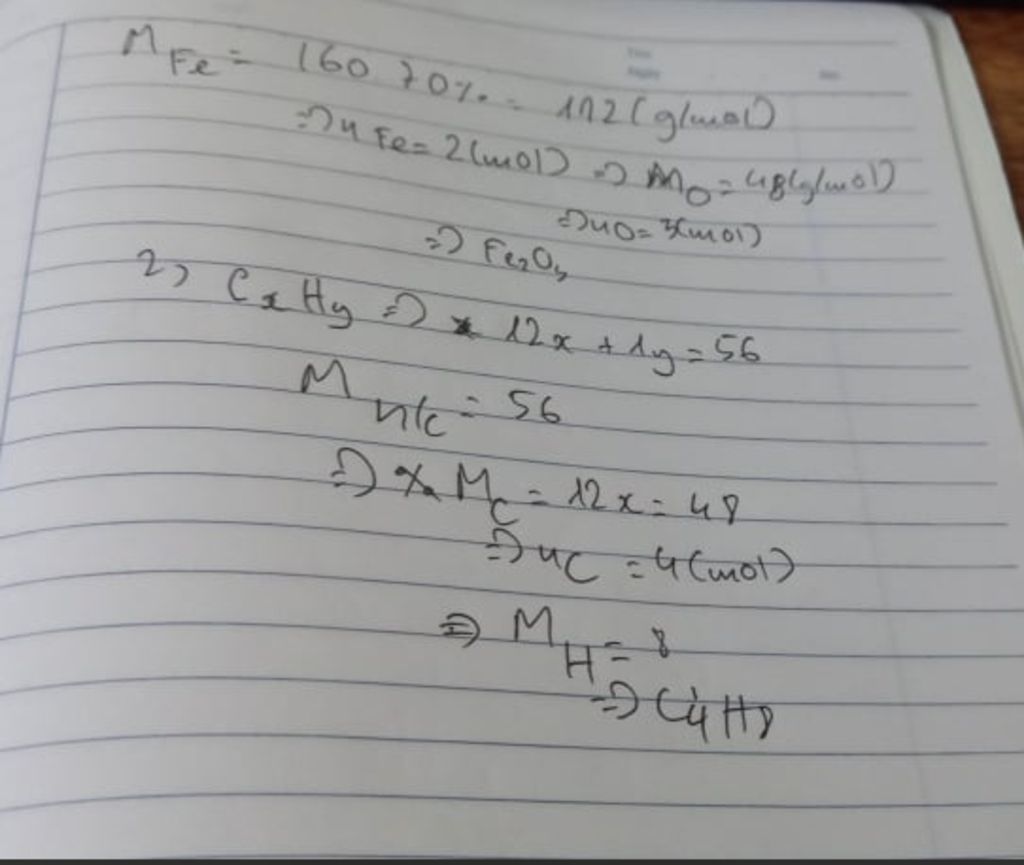 M Fe = 160 70% = 112 (g/mol)
=> n Fe = 2 (mol) => MO = 48 (g/mol)
=> nO = 3 (mol)
=> Fe2O3
2, CxHy => 12x + 1y = 56
M n/c = 56
=> MC = 12x = 48
=> nC = 4 (mol)
=> MH = 8
=> C4H8